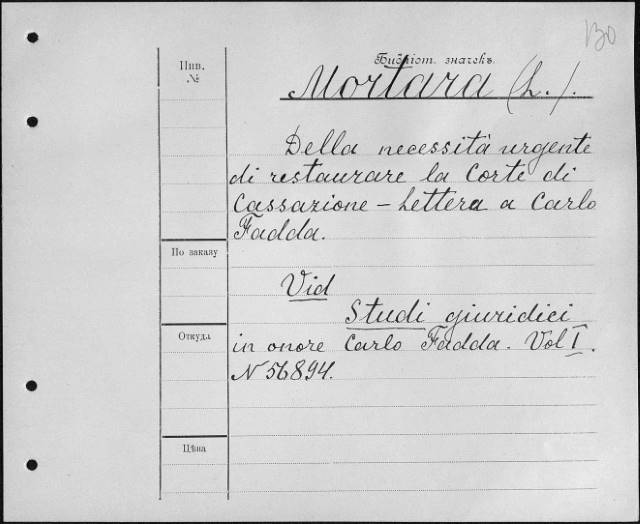 130
Библіот. значекъ.
Инв.
№
Mortara (L.).
Della necessità urgente
di restaurare la Corte di
Cassazione – Lettera a Carlo
Fadda.
По заказу
Vid
Studi giuridici
Откуда
in onore Carlo Fadda. Vol I.
N 56894.
Цѣна